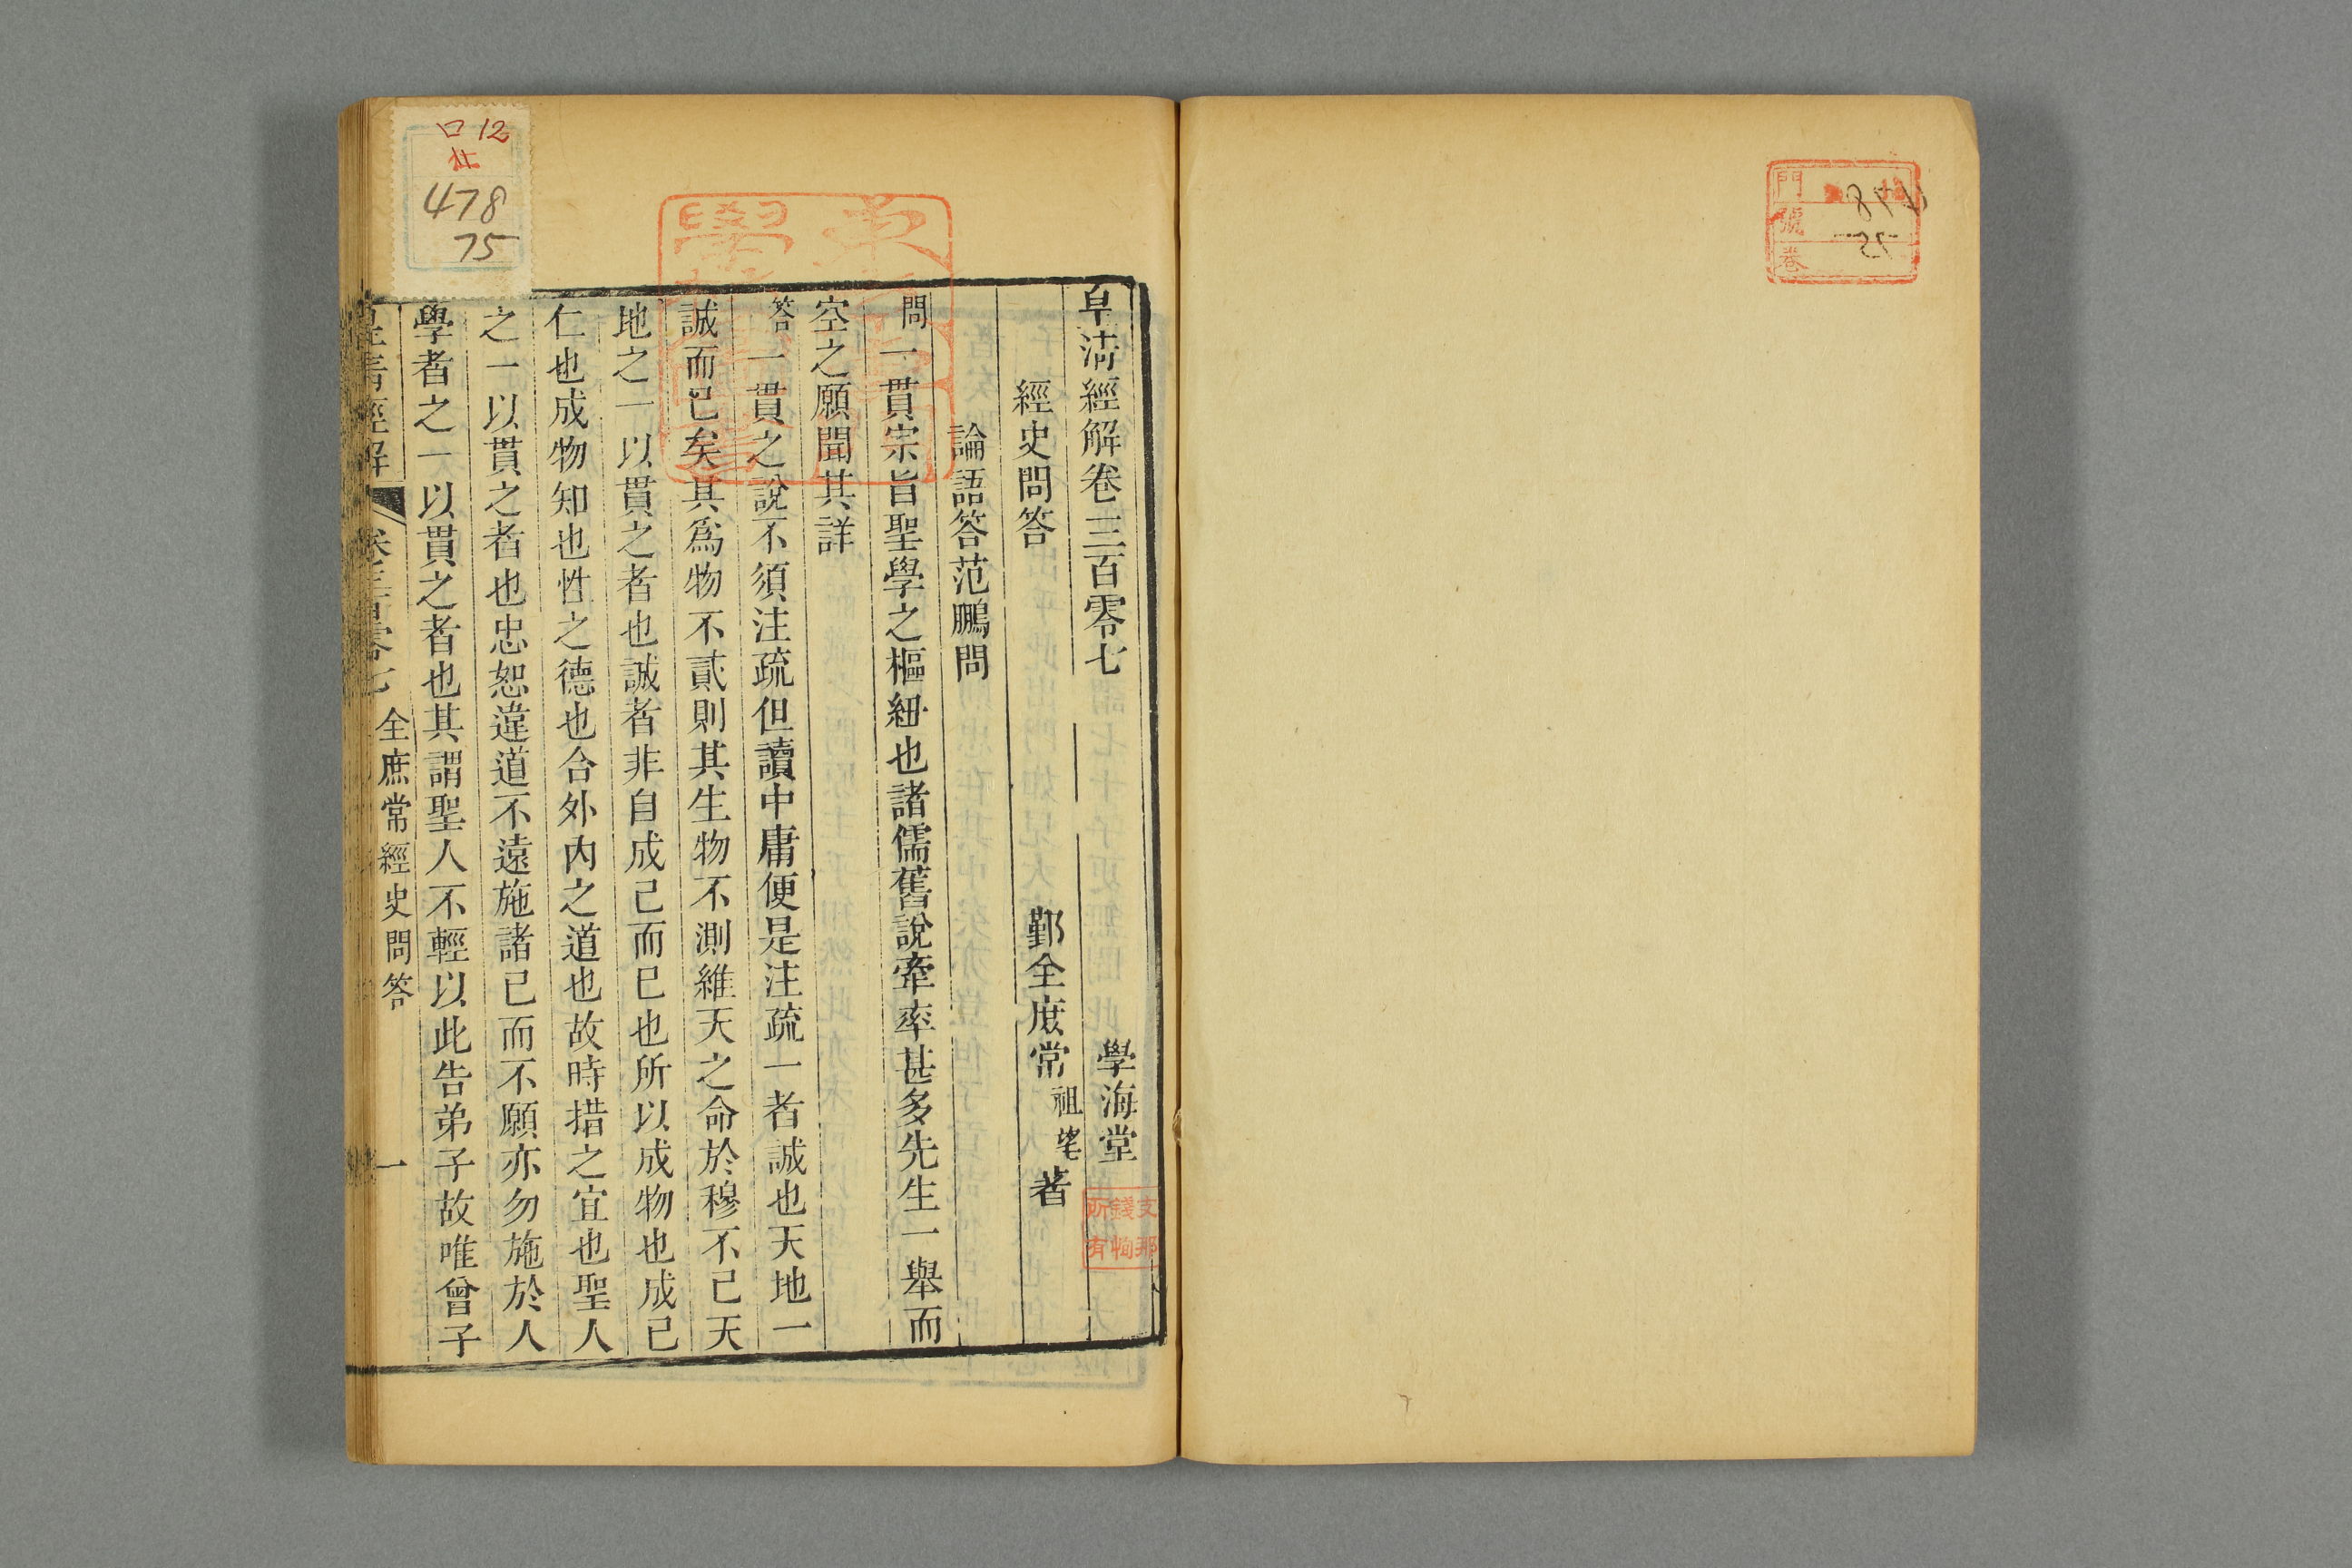 皇清經解卷三百零七 學海堂
經史問答 鄞全庶常祖望著
論語答范鵬問
問一貫宗旨聖學之樞紐也諸儒舊說牽率甚多先生一舉而
空之願聞其詳
答一貫之說不須注疏但讀中庸便是注疏一者誠也天地一
誠而已矣其爲物不貳則其生物不測維天之命於穆不已天
地之一以貫之者也誠者非自成己而已也所以成物也成己
仁也成物知也性之德也合外內之道也故時措之宜也聖人
之一以貫之者也忠恕違道不遠施諸己而不願亦勿施於人
學者之一以貫之者也其謂聖人不輕以此告弟子故唯曾子
皇清經解 卷三百零七 全庶常經史問答 一
口12
478
75
門
號
卷
支那
錢恂
所有